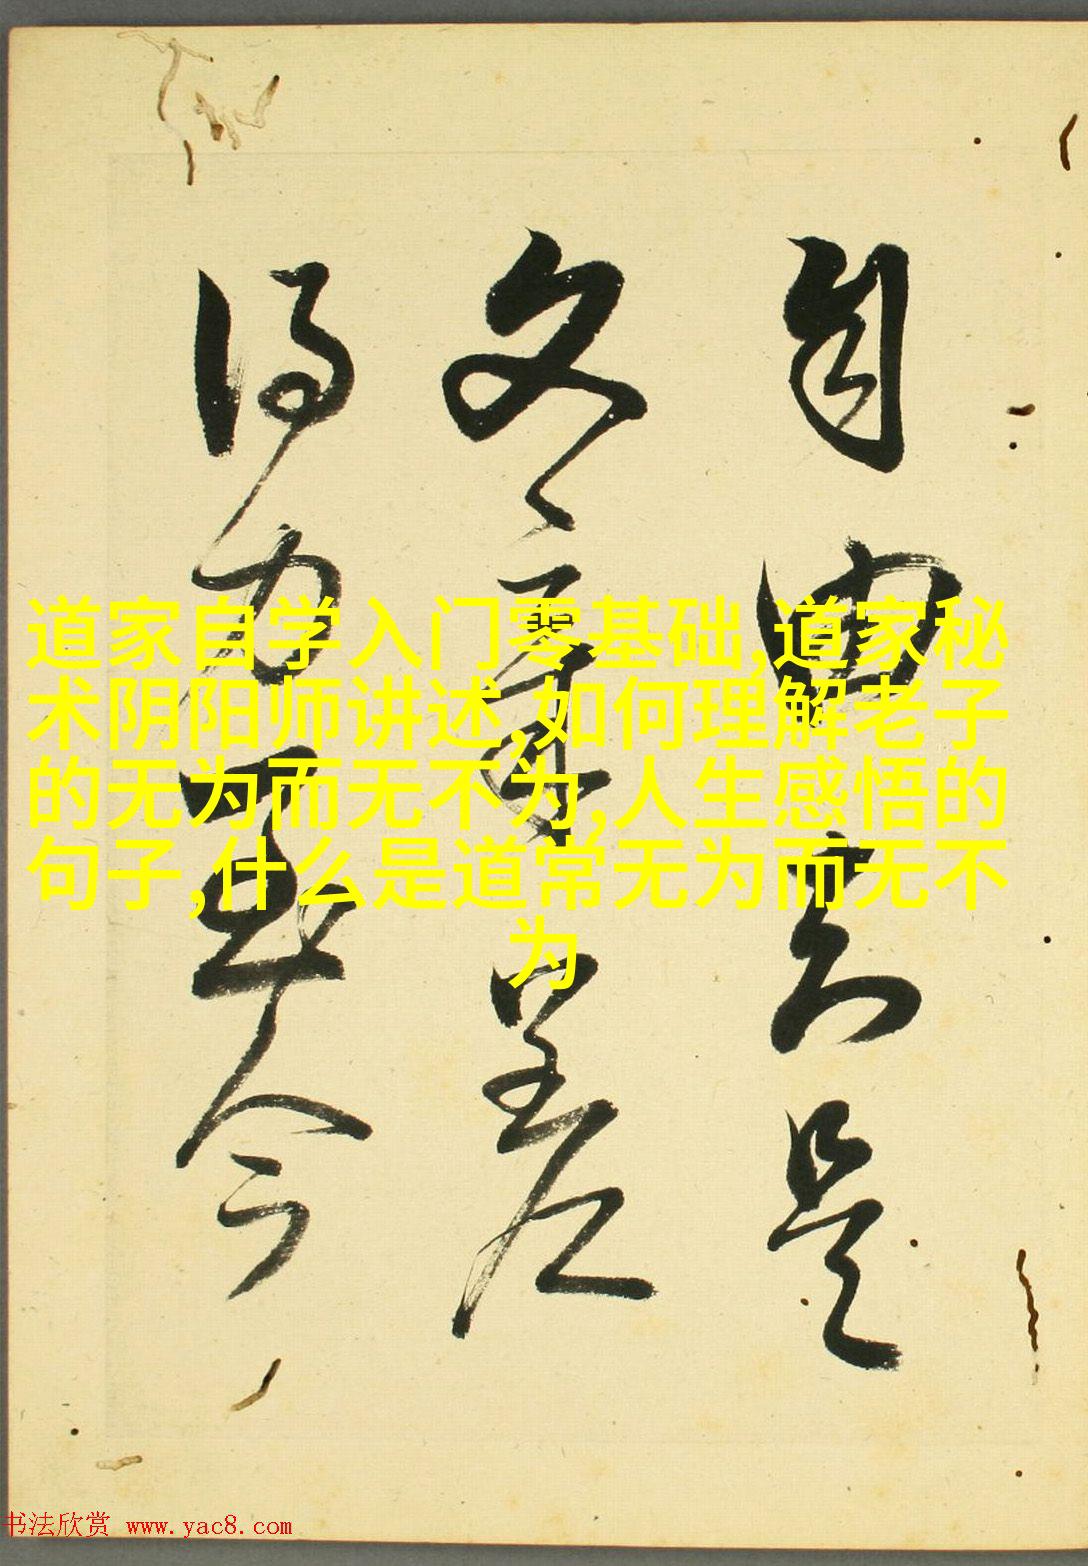 自由是
文章差
得力今
道家自学入门零基础,道家秘
术阴阳师讲述,如何理解老子
的无为而无不为,人生感悟的
句子,什么是道常无为而无不
为
书法欣赏 www.yac8.com